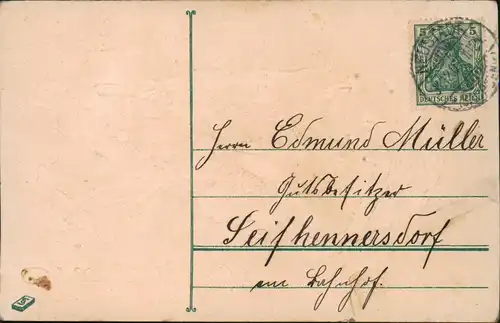 5 5
DEUTSCHES REICH
Herrn Edmund Müller
Gutsbesitzer
Seifhennersdorf
am Bahnhof.